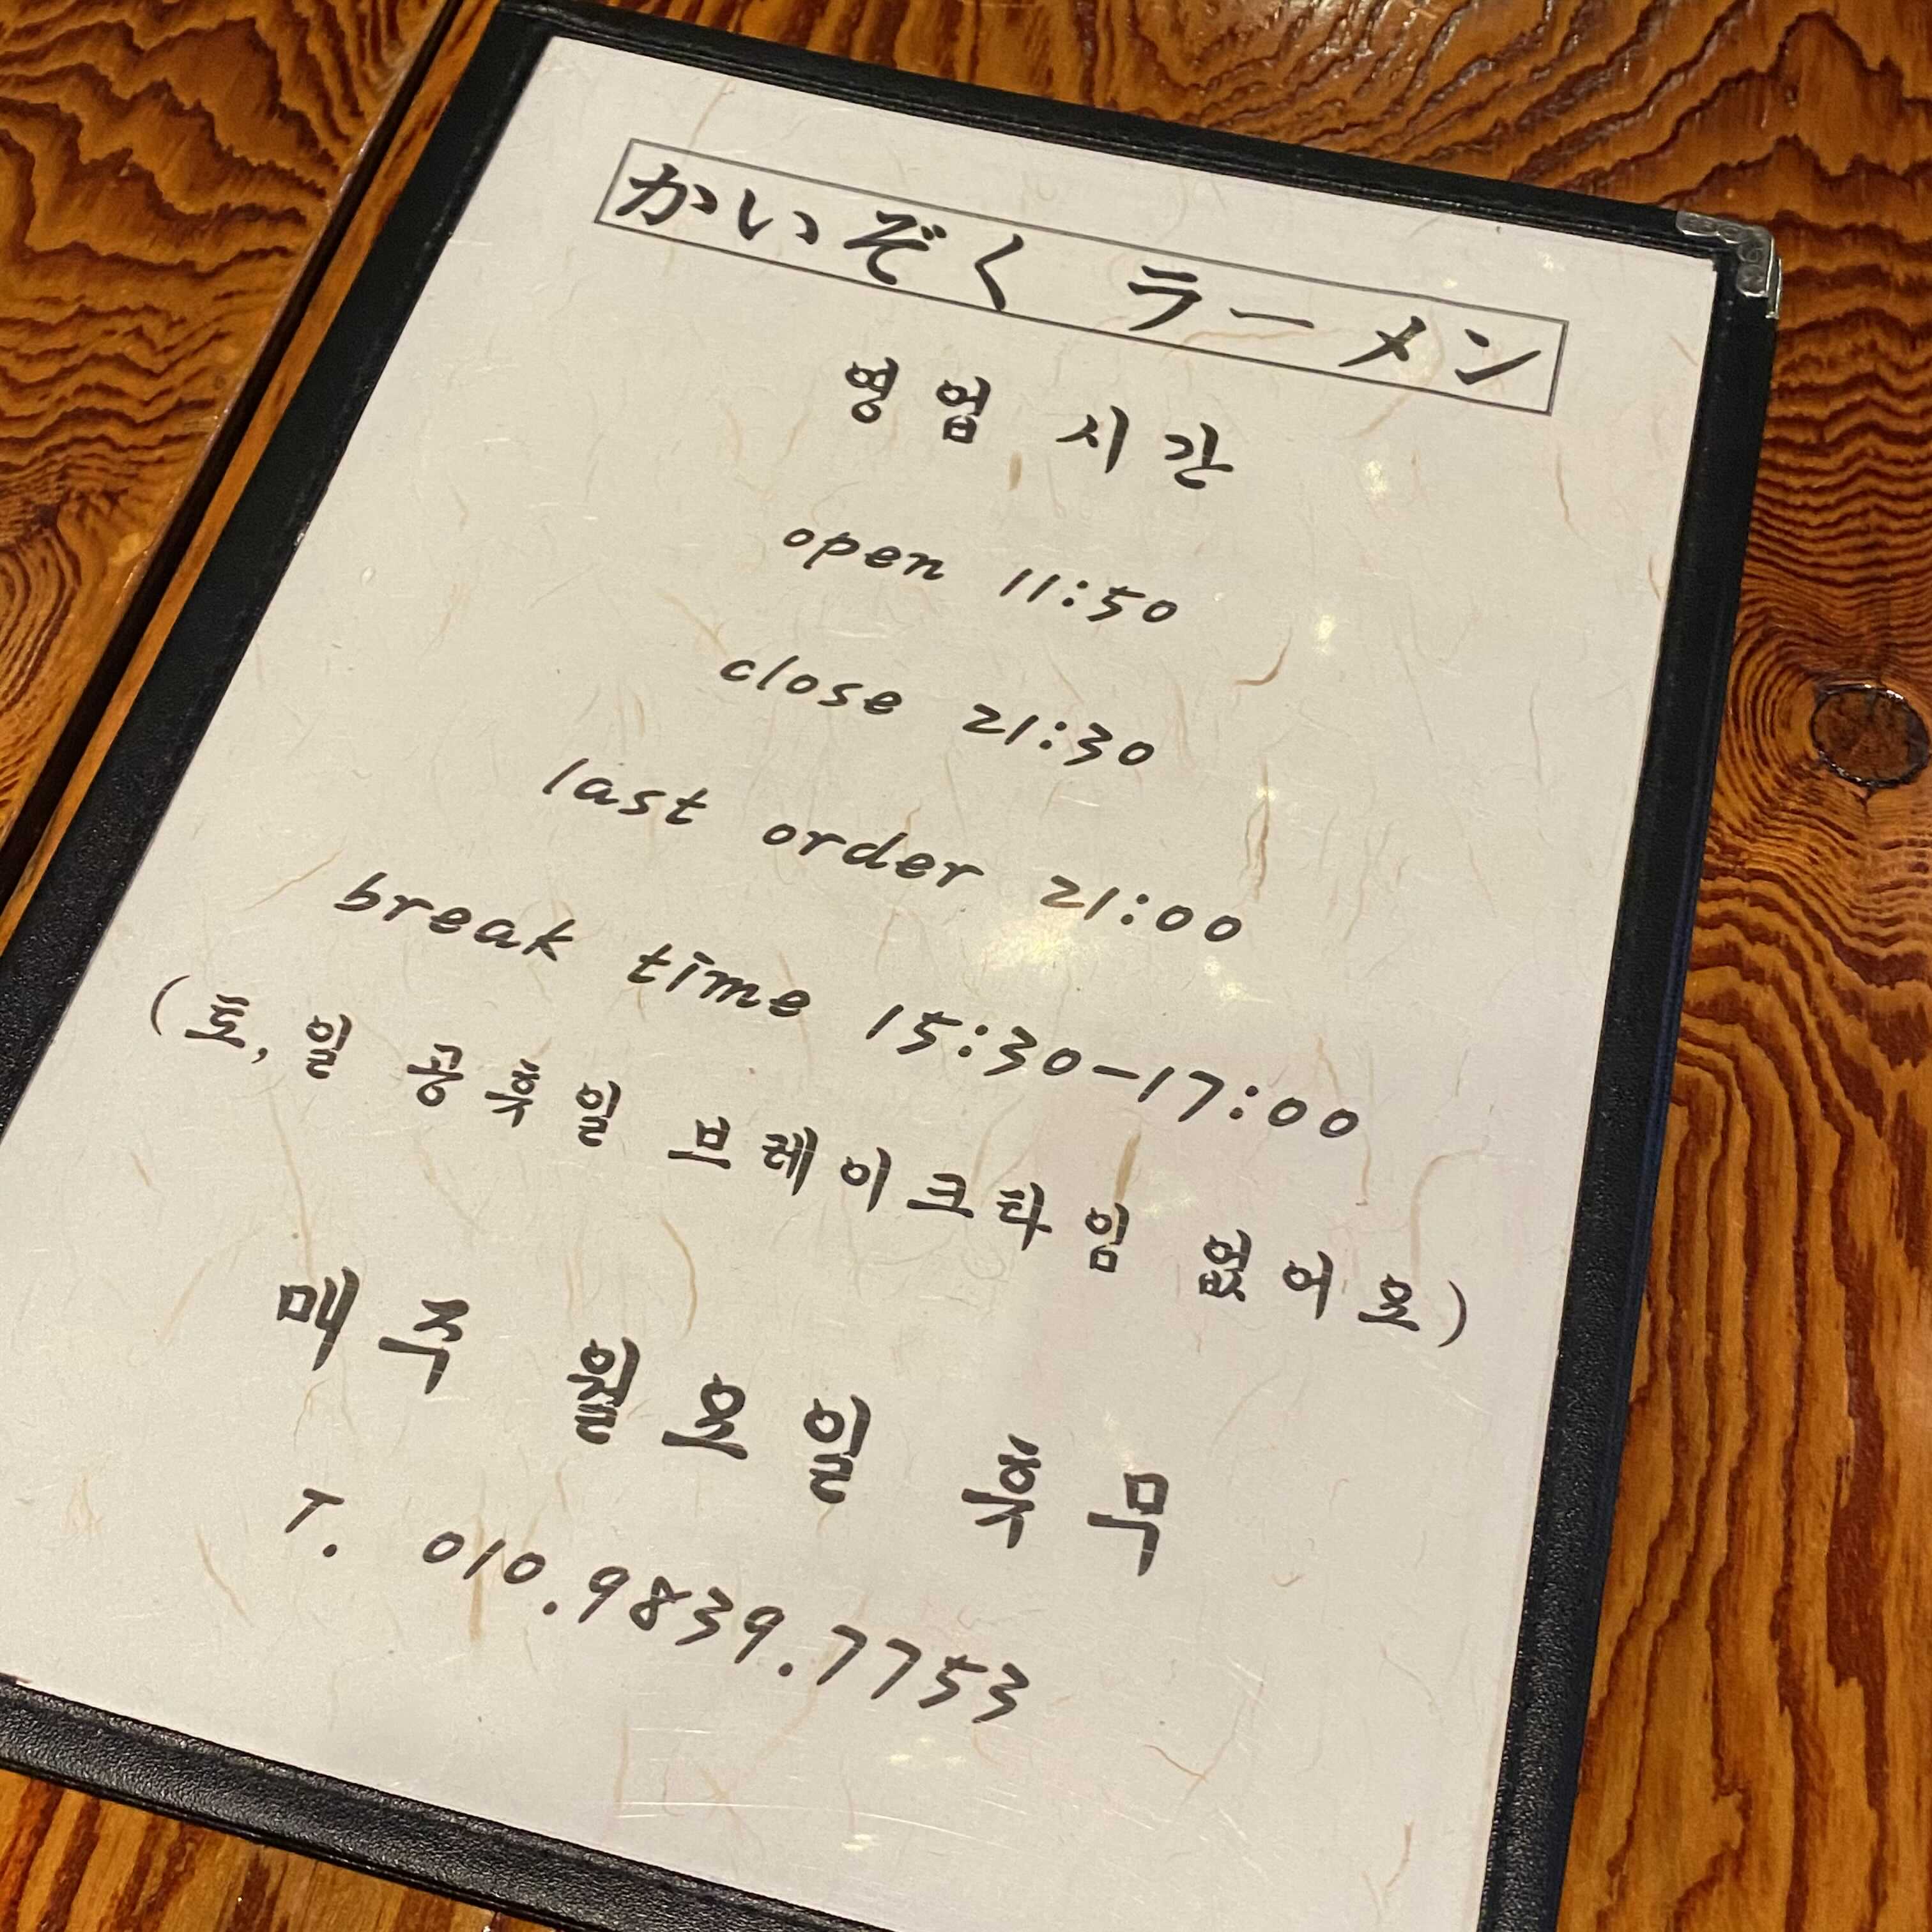 かいぞく ラーメン
영업 시간
open 11:50
close 21:30
last order 21:00
break time 15:30-17:00
(토, 일 공휴일 브레이크타임 없어요)
매주 월요일 휴무
T. 010.9839.7753